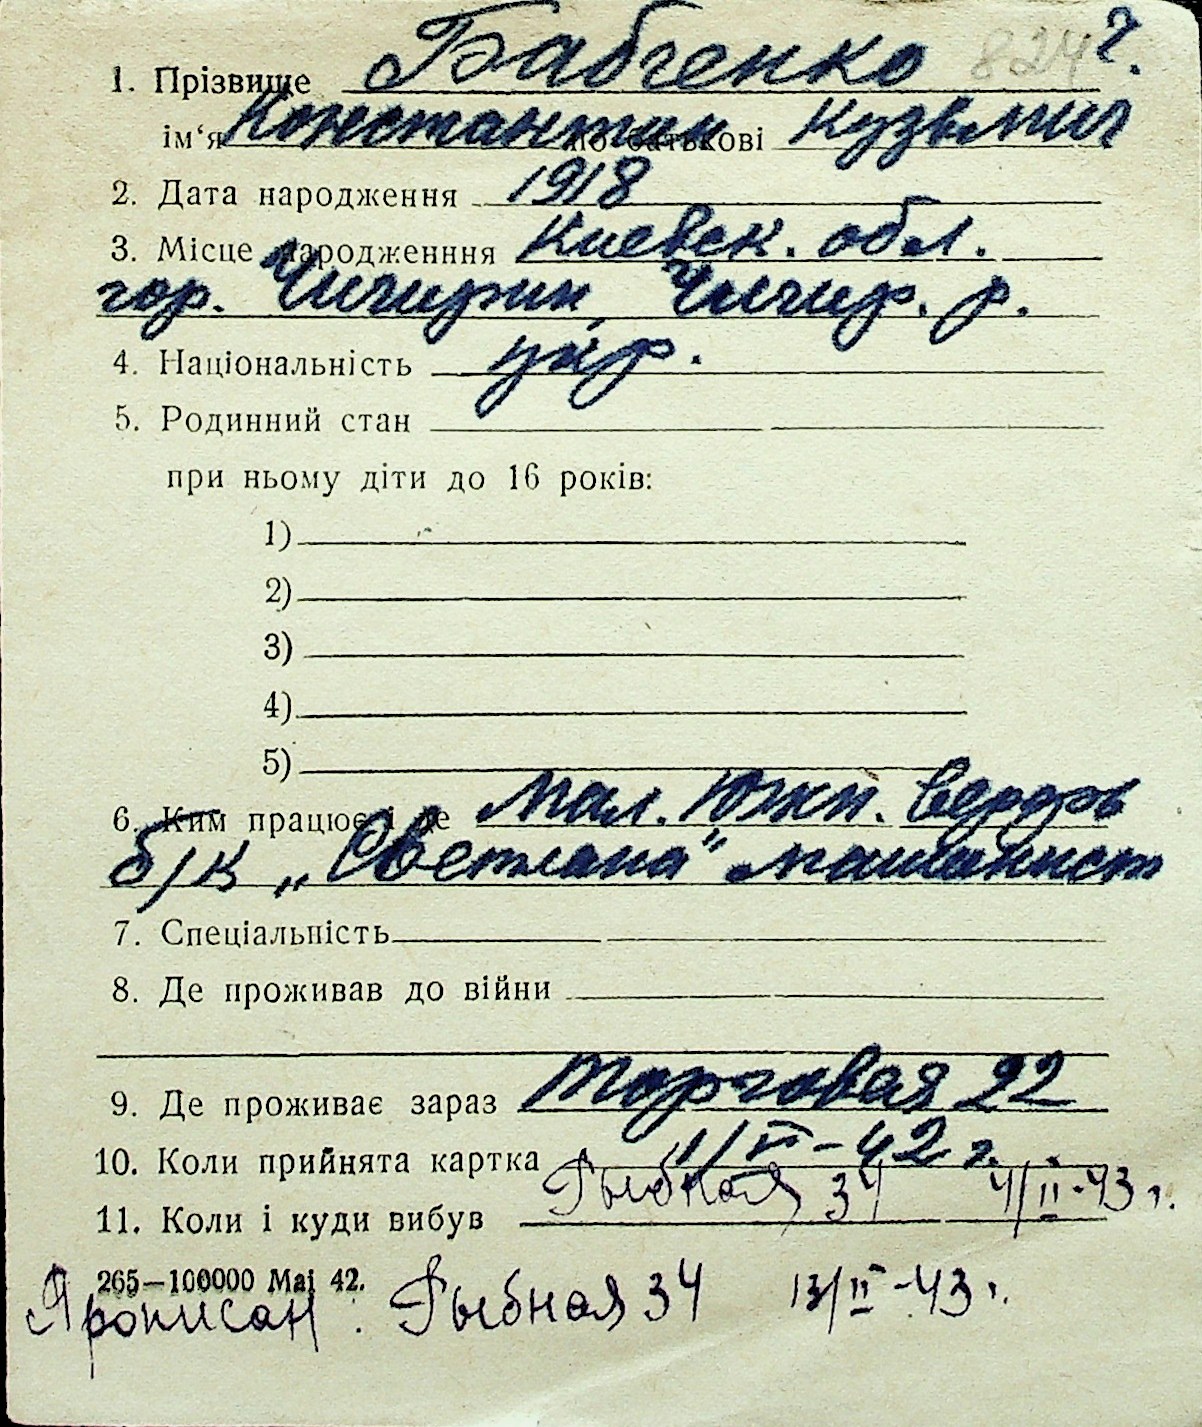 824 ?.
1. Прізвище Бабченко
ім‘я Константин по батькові Кузьмич
2. Дата народження 1918
3. Місце народженння Киевск. обл.
гор. Чигирин, Чигир. р.
4. Національність укр.
5. Родинний стан
при ньому діти до 16 років:
1)
2)
3)
4)
5)
6. Ким працює і де Мал. Южн. верфь
б/к „Светлана" машинист
7. Спеціальність
8. Де проживав до війни
9. Де проживає зараз Торговая 22
10. Коли прийнята картка 1/VI-42 г.
Рыбная 34 4/II-43 г.
11. Коли і куди вибув
265—100000 Mai 42.
Прописан. Рыбная 34 13/II-43 г.